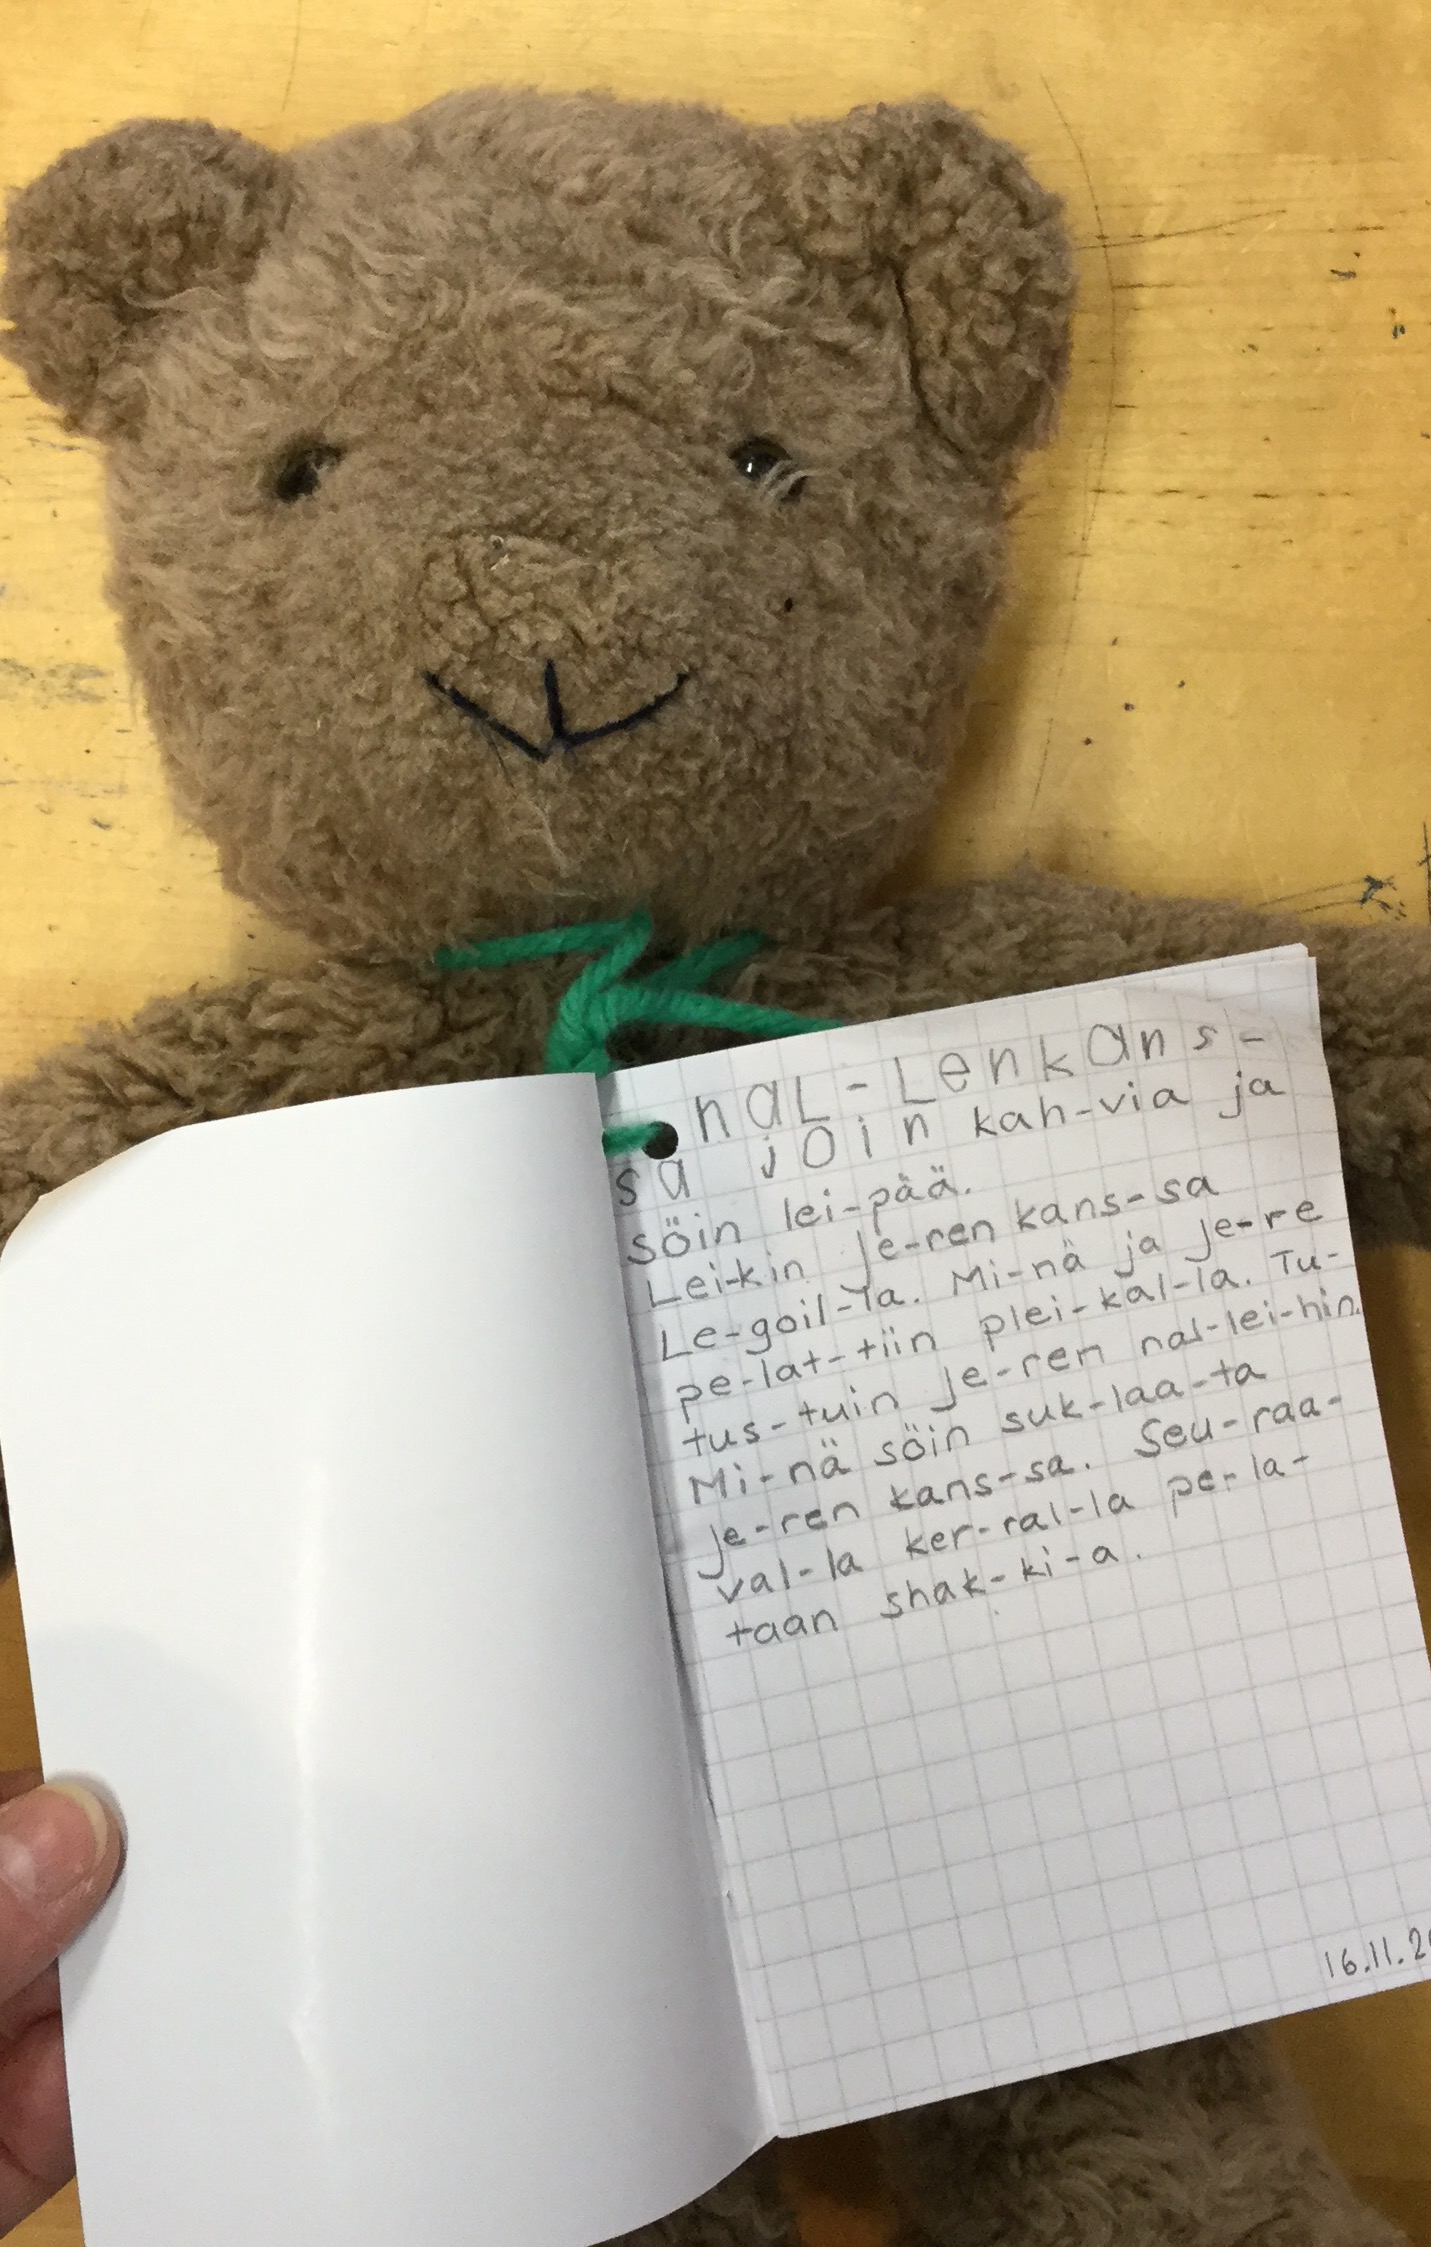 naL-Lenkans-
sa join kah-via ja
söin lei-pää.
Lei-kin je-ren kans-sa
Le-goil-la. Mi-nä ja je-re
pe-lat-tiin plei-kal-la. Tu-
tus-tuin je-ren nal-lei-hin.
Mi-nä söin suk-laa-ta
je-ren kans-sa. Seu-raa-
val-la ker-ral-la pe-la-
taan shak-ki-a.
16.11.2